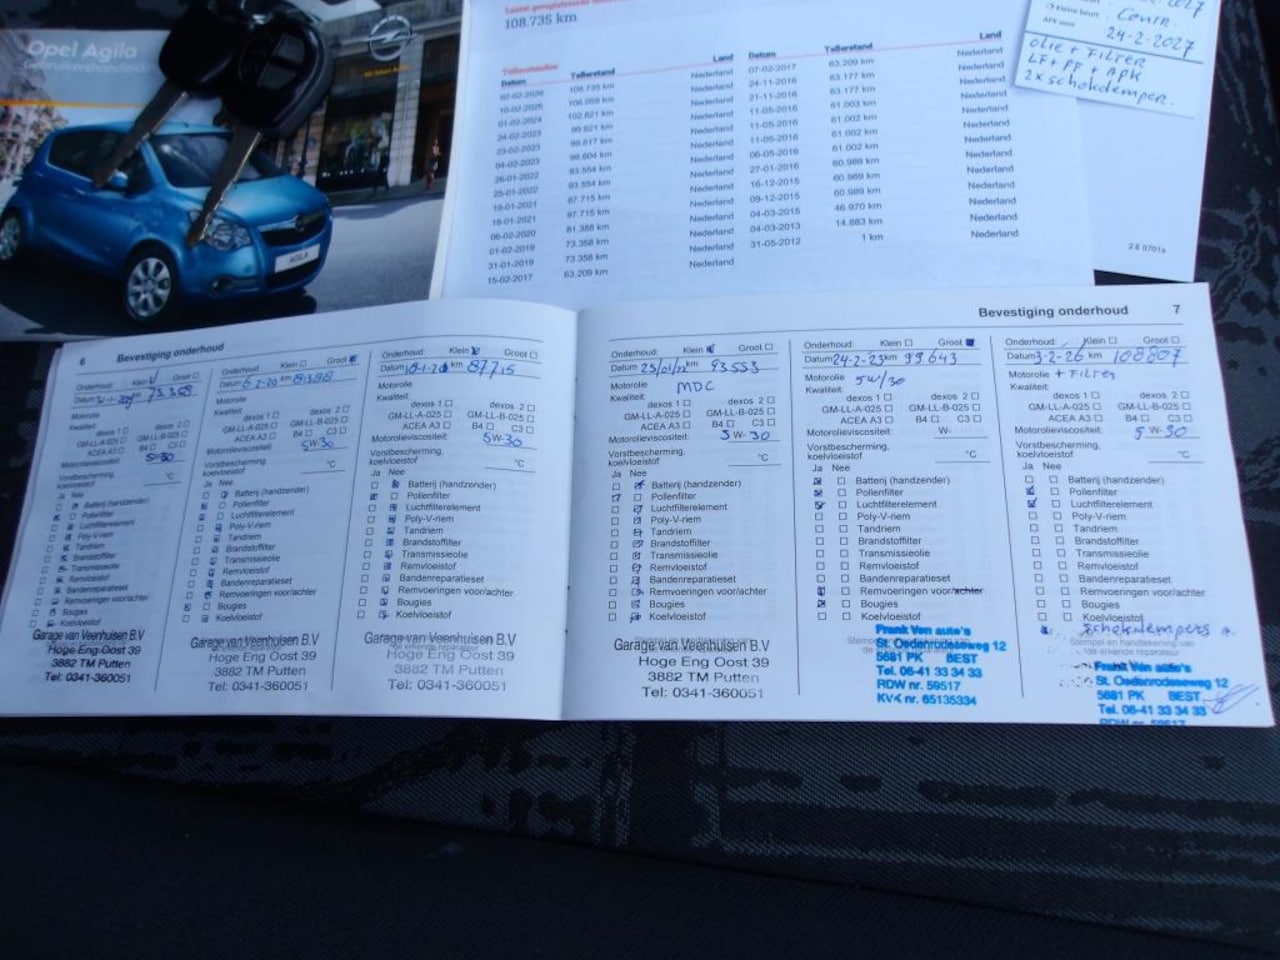 Opel Agila
Gebruikershandleiding
108.735 km
Tellerstanden
Datum Tellerstand Land
108.735 km Nederland
10-02-2025 Nederland
01-02-2024 102.621 km Nederland
24-02-2023 99.621 km Nederland
23-02-2023 99.617 km Nederland
04-02-2023 99.604 km Nederland
26-01-2022 93.554 km Nederland
25-01-2022 93.554 km Nederland
19-01-2021 87.715 km Nederland
18-01-2021 87.715 km Nederland
06-02-2020 81.388 km Nederland
01-02-2019 73.358 km Nederland
31-01-2019 73.358 km Nederland
15-02-2017 63.209 km Nederland
Datum Tellerstand Land
07-02-2017 63.209 km Nederland
24-11-2016 63.177 km Nederland
21-11-2016 63.177 km Nederland
11-05-2016 61.003 km Nederland
11-05-2016 61.002 km Nederland
11-05-2016 61.002 km Nederland
06-05-2016 61.002 km Nederland
27-01-2016 60.989 km Nederland
16-12-2015 60.989 km Nederland
09-12-2015 60.989 km Nederland
04-03-2015 46.970 km Nederland
04-03-2013 14.883 km Nederland
31-05-2012 1 km Nederland
Kleine beurt CONTR.
APK voor 24-2-2027
OLIE + FILTER
LF + PF + APK
2x schokdemper.
2 E 9701s
6 Bevestiging onderhoud
Onderhoud: Klein Groot
Datum km
Motorolie
Kwaliteit:
dexos 1 dexos 2
GM-LL-A-025 GM-LL-B-025
ACEA A3 B4 C3
Motorolieviscositeit: 5W-30
Vorstbescherming,
koelvloeistof °C
Ja Nee
Batterij (handzender)
Pollenfilter
Luchtfilterelement
Poly-V-riem
Tandriem
Brandstoffilter
Transmissieolie
Remvloeistof
Bandenreparatieset
Remvoeringen voor/achter
Bougies
Koelvloeistof
Garage van Veenhuisen B.V
Hoge Eng Oost 39
3882 TM Putten
Tel: 0341-360051
Onderhoud: Klein Groot
Datum 6-2-20 km 81388
Motorolie
Kwaliteit:
dexos 1 dexos 2
GM-LL-A-025 GM-LL-B-025
ACEA A3 B4 C3
Motorolieviscositeit: 5W-30
Vorstbescherming,
koelvloeistof °C
Ja Nee
Batterij (handzender)
Pollenfilter
Luchtfilterelement
Poly-V-riem
Tandriem
Brandstoffilter
Transmissieolie
Remvloeistof
Bandenreparatieset
Remvoeringen voor/achter
Bougies
Koelvloeistof
Garage van Veenhuisen B.V
Hoge Eng Oost 39
3882 TM Putten
Tel: 0341-360051
Onderhoud: Klein Groot
Datum km 87715
Motorolie
Kwaliteit:
dexos 1 dexos 2
GM-LL-A-025 GM-LL-B-025
ACEA A3 B4 C3
Motorolieviscositeit: 5W-30
Vorstbescherming,
koelvloeistof °C
Ja Nee
Batterij (handzender)
Pollenfilter
Luchtfilterelement
Poly-V-riem
Tandriem
Brandstoffilter
Transmissieolie
Remvloeistof
Bandenreparatieset
Remvoeringen voor/achter
Bougies
Koelvloeistof
Garage van Veenhuisen B.V
Hoge Eng Oost 39
3882 TM Putten
Tel: 0341-360051
Bevestiging onderhoud 7
Onderhoud: Klein Groot
Datum 25/01/22 km 93553
Motorolie MDC
Kwaliteit:
dexos 1 dexos 2
GM-LL-A-025 GM-LL-B-025
ACEA A3 B4 C3
Motorolieviscositeit: 5 W- 30
Vorstbescherming,
koelvloeistof °C
Ja Nee
Batterij (handzender)
Pollenfilter
Luchtfilterelement
Poly-V-riem
Tandriem
Brandstoffilter
Transmissieolie
Remvloeistof
Bandenreparatieset
Remvoeringen voor/achter
Bougies
Koelvloeistof
Garage van Veenhuisen B.V
Hoge Eng Oost 39
3882 TM Putten
Tel: 0341-360051
Onderhoud: Klein Groot
Datum 24-2-23 km 99643
Motorolie 5W/30
Kwaliteit:
dexos 1 dexos 2
GM-LL-A-025 GM-LL-B-025
ACEA A3 B4 C3
Motorolieviscositeit: W-
Vorstbescherming,
koelvloeistof °C
Ja Nee
Batterij (handzender)
Pollenfilter
Luchtfilterelement
Poly-V-riem
Tandriem
Brandstoffilter
Transmissieolie
Remvloeistof
Bandenreparatieset
Remvoeringen voor/achter
Bougies
Koelvloeistof
Frank Ven auto's
St. Oedenrodeseweg 12
5681 PK BEST
Tel. 06-41 33 34 33
RDW nr. 59517
KVK nr. 65135334
Onderhoud: Klein Groot
Datum 3-2-26 km 108807
Motorolie + FILTER
Kwaliteit:
dexos 1 dexos 2
GM-LL-A-025 GM-LL-B-025
ACEA A3 B4 C3
Motorolieviscositeit: 5 W- 30
Vorstbescherming,
koelvloeistof °C
Ja Nee
Batterij (handzender)
Pollenfilter
Luchtfilterelement
Poly-V-riem
Tandriem
Brandstoffilter
Transmissieolie
Remvloeistof
Bandenreparatieset
Remvoeringen voor/achter
Bougies
Koelvloeistof
schokdempers
Frank Ven auto's
St. Oedenrodeseweg 12
5681 PK BEST
Tel. 06-41 33 34 33
RDW nr. 59517